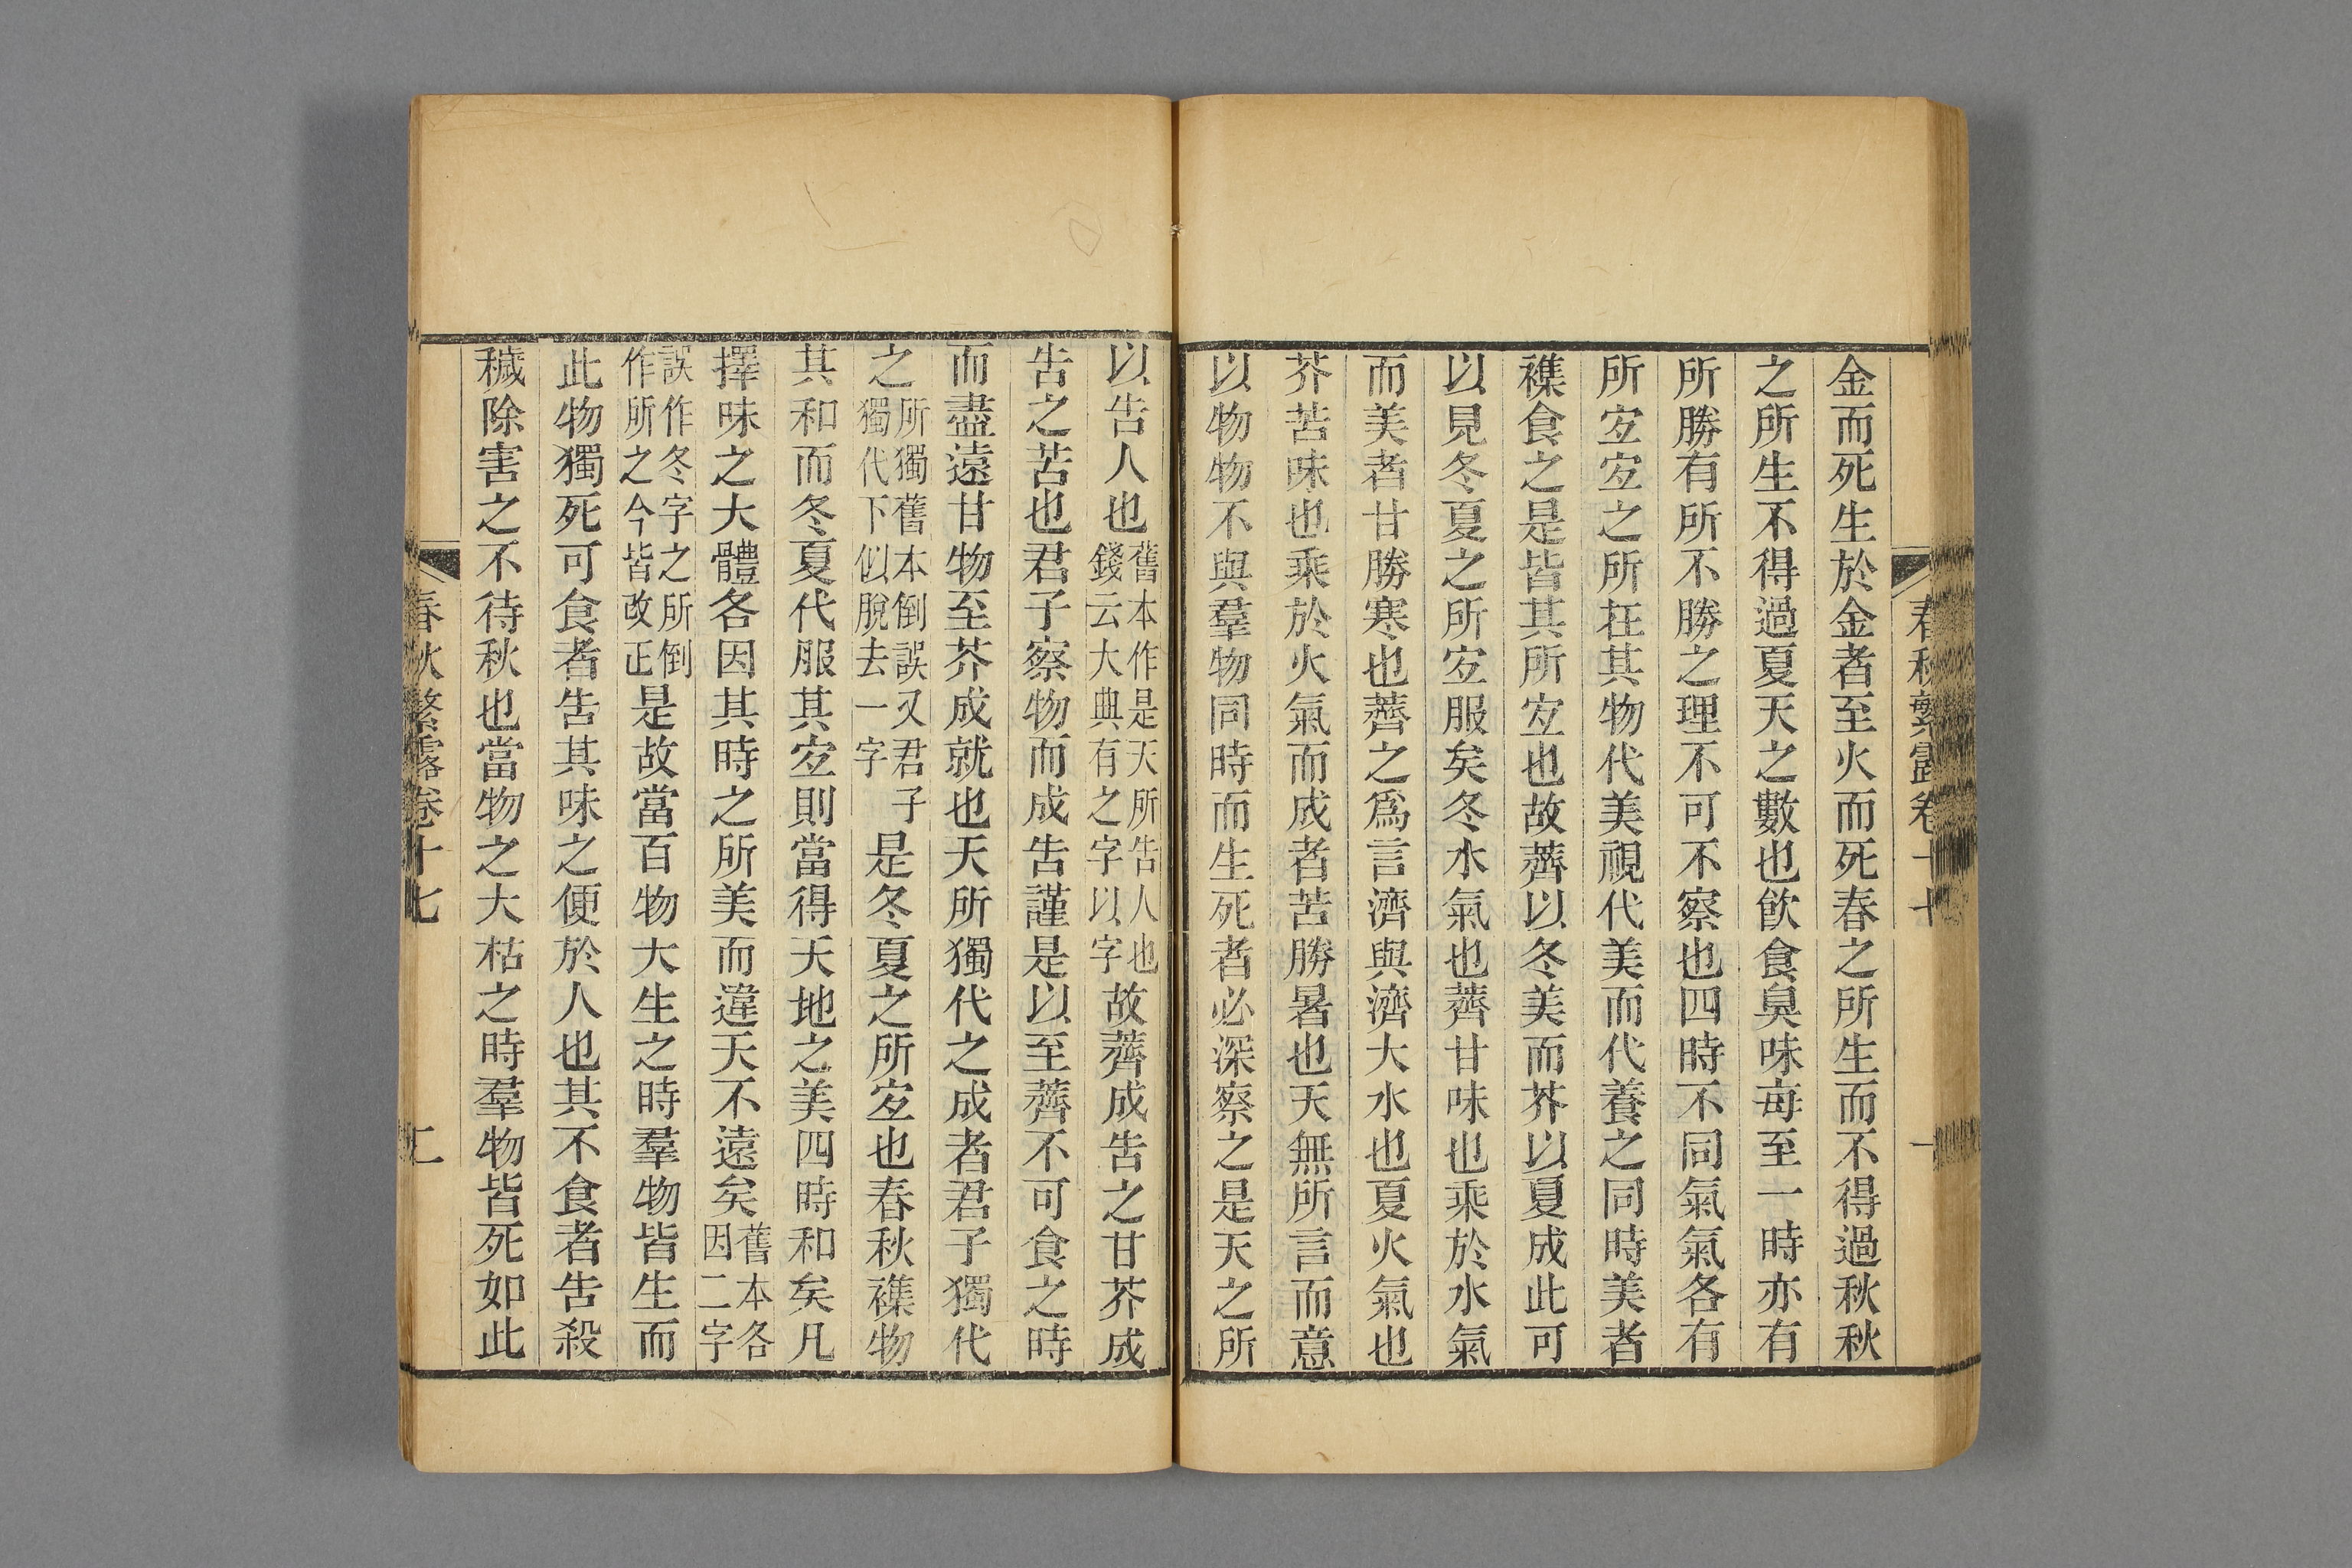 春秋繁露卷十七 一
金而死生於金者至火而死春之所生而不得過秋秋
之所生不得過夏天之數也飮食臭味每至一時亦有
所勝有所不勝之理不可不察也四時不同氣氣各有
所宐宐之所在其物代美視代美而代養之同時美者
襍食之是皆其所宐也故薺以冬美而芥以夏成此可
以見冬夏之所宐服矣冬水氣也薺甘味也乘於水氣
而美者甘勝寒也薺之爲言濟與濟大水也夏火氣也
芥苦味也乘於火氣而成者苦勝暑也天無所言而意
以物物不與羣物同時而生死者必深察之是天之所
以告人也舊本作是天所告人也錢云大典有之字以字故薺成告之甘芥成
告之苦也君子察物而成告謹是以至薺不可食之時
而盡遠甘物至芥成就也天所獨代之成者君子獨代
之所獨舊本倒誤又君子獨代下似脫去一字是冬夏之所宐也春秋襍物
其和而冬夏代服其宐則當得天地之美四時和矣凡
擇味之大體各因其時之所美而違天不遠矣舊本各因二字
誤作冬字之所倒作所之今皆改正是故當百物大生之時羣物皆生而
此物獨死可食者告其味之便於人也其不食者告殺
穢除害之不待秋也當物之大枯之時羣物皆死如此
春秋繁露卷十七 二